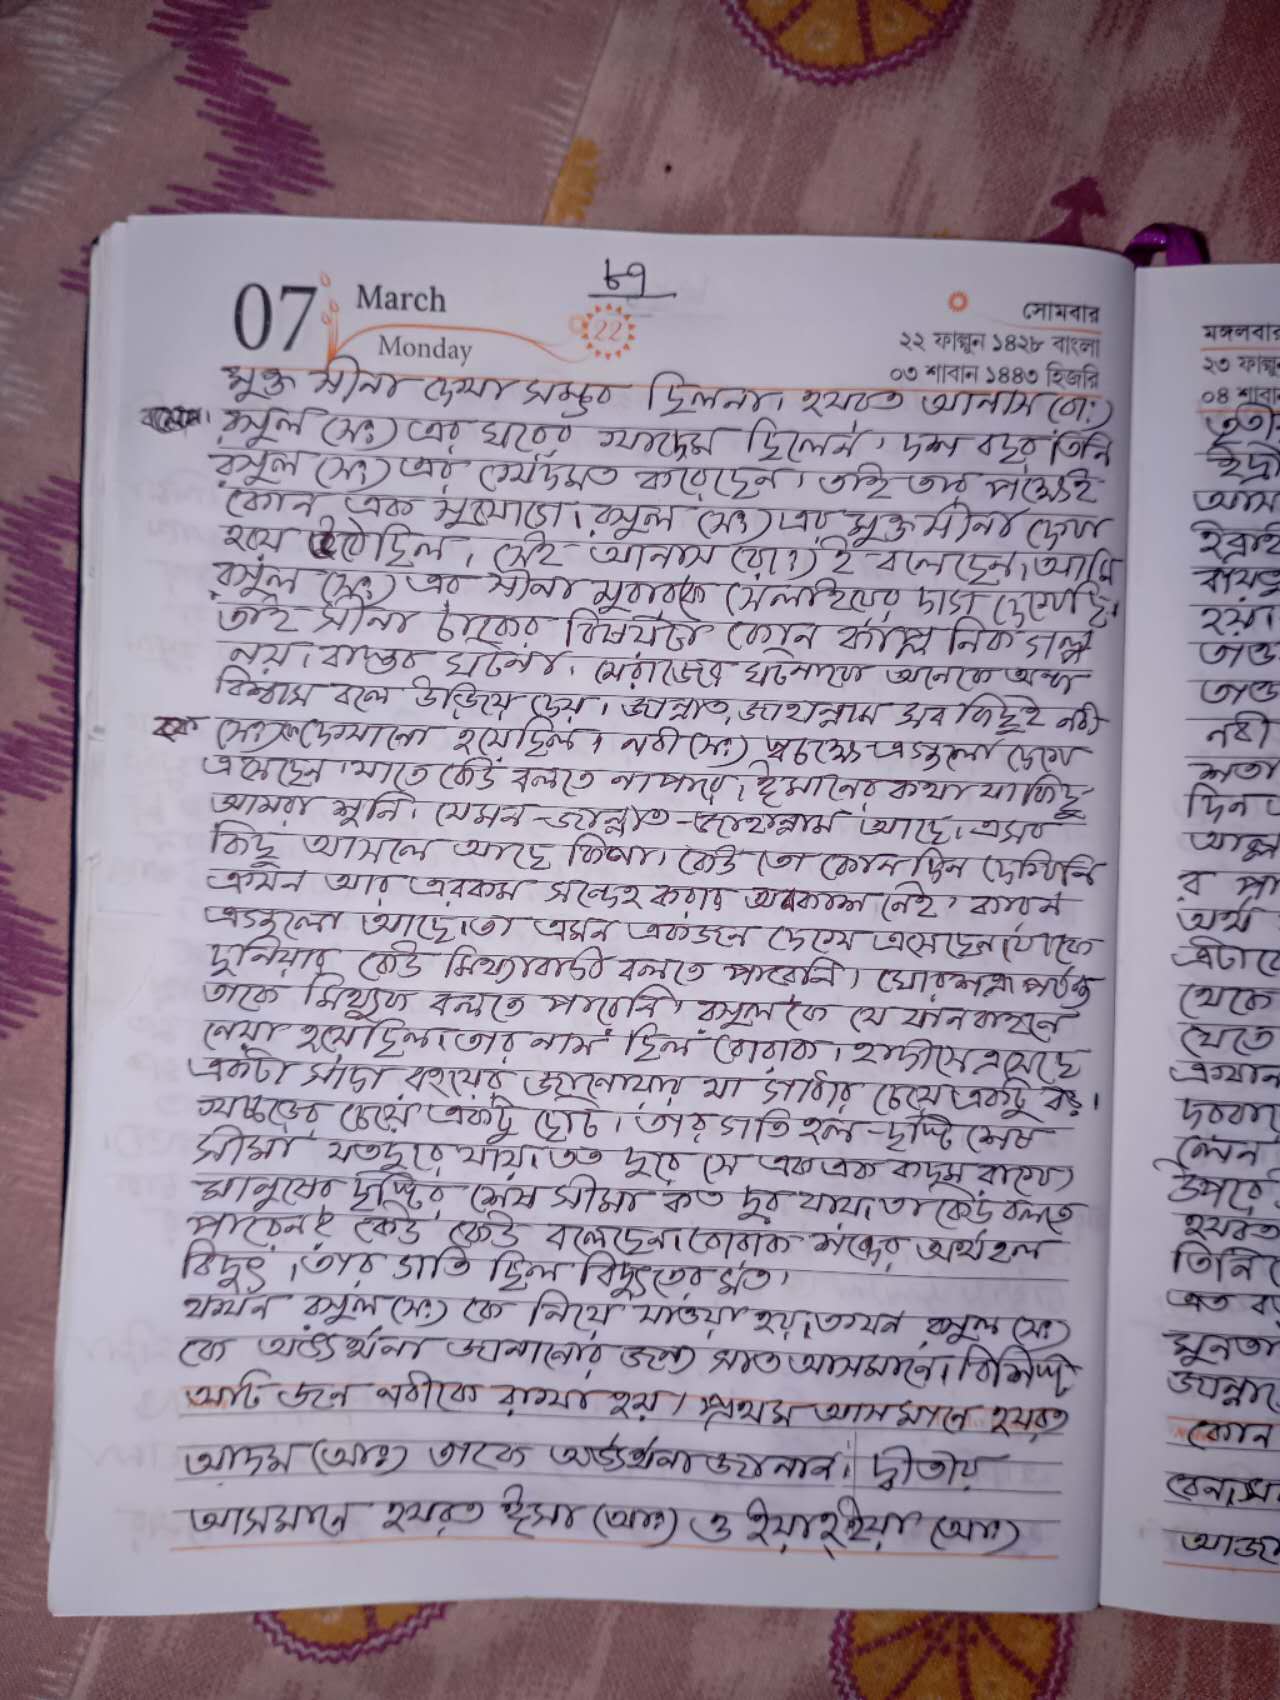 ৮৭
07 March
Monday
22
সোমবার
২২ ফাল্গুন ১৪২৮ বাংলা
০৩ শাবান ১৪৪৩ হিজরি
মুক্ত সীনা দেখা সম্ভব ছিলনা। হযরত আনাস (রাঃ)
রসুল (সঃ) এর ঘরের খাদেম ছিলেন। দশ বছর তিনি
রসুল (সঃ) এর খেদমত করেছেন। তাই তার পক্ষেই
কোন এক সুযোগে। রসুল (সঃ) এর মুক্ত সীনা দেখা
হয়ে উঠেছিল। সেই আনাস (রাঃ) ই বলেছেন। আমি
রসুল (সঃ) এর সীনা মুবারকে সেলাইয়ের দাগ দেখেছি।
তাই সীনা চাকের বিষয়টা কোন কাল্পনিক গল্প
নয়। বাস্তব ঘটনা। মেরাজের ঘটনাকে অনেকে অন্ধ
বিশ্বাস বলে উড়িয়ে দেয়। জান্নাত, জাহান্নাম সব কিছুই নবী
(সঃ) কে দেখানো হয়েছিল। নবী (সঃ) স্বচক্ষে এগুলো দেখে
এসেছেন। যাতে কেউ বলতে না পারে। ঈমানের কথা যা কিছু
আমরা শুনি। যেমন-জান্নাত-জাহান্নাম আছে। এসব
কিছু আসলে আছে কিনা। কেউ তো কোন দিন দেখিনি
এখন আর এরকম সন্দেহ করার অবকাশ নেই। কারন
এগুলো আছে। তা এমন একজন দেখে এসেছেন। যাকে
দুনিয়ার কেউ মিথ্যাবাদী বলতে পারেনি। ঘোরশত্রু পর্যন্ত
তাকে মিথ্যুক বলতে পারেনি। রসুলকে যে যানবাহনে
নেয়া হয়েছিল। তার নাম ছিল বোরাক। হাদীসে এসেছে
একটা সাদা রংয়ের জানোয়ার যা গাধার চেয়ে একটু বড়।
খচ্চরের চেয়ে একটু ছোট। তার গতি হল-দৃষ্টি শেষ
সীমা যতদুরে যায়। তত দুরে সে এক এক কদম রাখে।
মানুষের দৃষ্টির শেষ সীমা কত দুর যায়। তা কেউ বলতে
পারেনা। কেউ কেউ বলেছেন। বোরাক শব্দের অর্থ হল
বিদ্যুৎ। তার গতি ছিল বিদ্যুতের মত।
যখন রসুল (সঃ) কে নিয়ে যাওয়া হয়। তখন রসুল (সঃ)
কে অভ্যর্থনা জানানোর জন্য সাত আসমানে। বিশিষ্ট
আট জন নবীকে রাখা হয়। প্রথম আসমানে হযরত
আদম (আঃ) তাকে অভ্যর্থনা জানান। দ্বীতীয়
আসমানে হযরত ঈসা (আঃ) ও ইয়াহ্ইয়া (আঃ)
মঙ্গলবার
২৩
০৪
নবী
দিন
র
অর্থ
থেকে
যেতে
উপরে
হযরত
এত
কোন